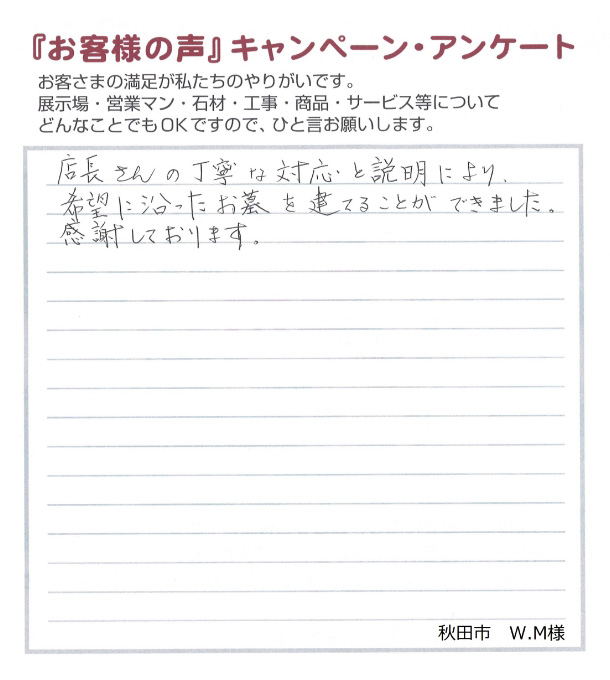 『お客様の声』キャンペーン・アンケート
お客さまの満足が私たちのやりがいです。
展示場・営業マン・石材・工事・商品・サービス等について
どんなことでもOKですので、ひと言お願いします。
店長さんの丁寧な対応と説明により、
希望に沿ったお墓を建てることができました。
感謝しております。
秋田市　W.M様